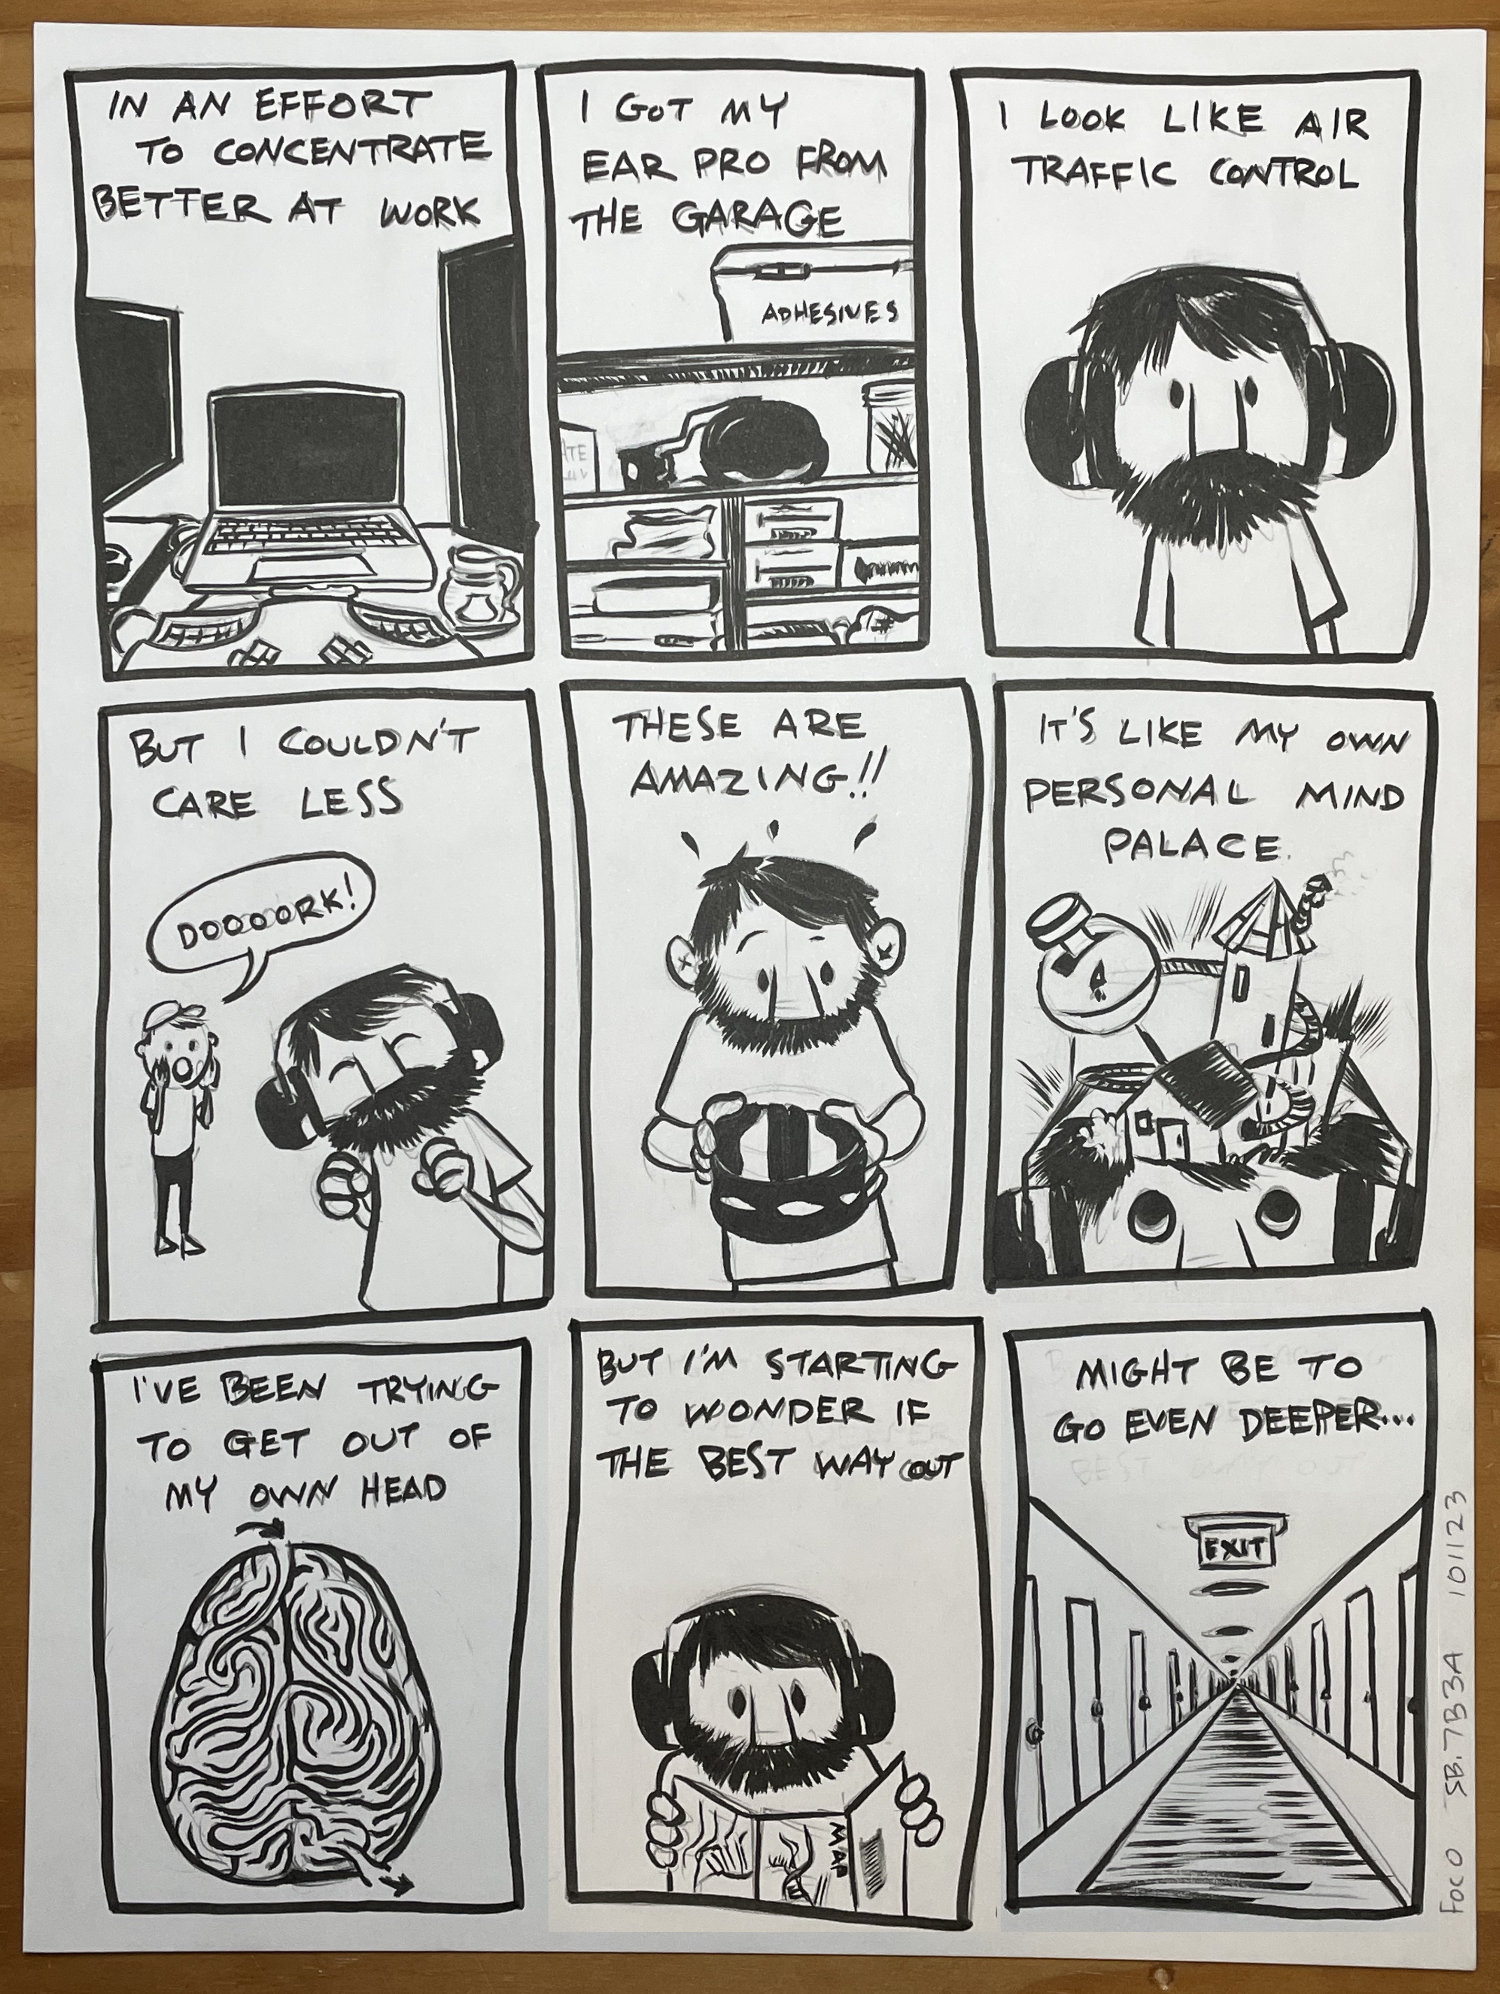 IN AN EFFORT
TO CONCENTRATE
BETTER AT WORK
I GOT MY
EAR PRO FROM
THE GARAGE
ADHESIVES
I LOOK LIKE AIR
TRAFFIC CONTROL
BUT I COULDN'T
CARE LESS
DOOOORK!
THESE ARE
AMAZING!!
IT'S LIKE MY OWN
PERSONAL MIND
PALACE.
I'VE BEEN TRYING
TO GET OUT OF
MY OWN HEAD
BUT I'M STARTING
TO WONDER IF
THE BEST WAY OUT
MAP
MIGHT BE TO
GO EVEN DEEPER...
EXIT
FOCO SB.7B3A 101123